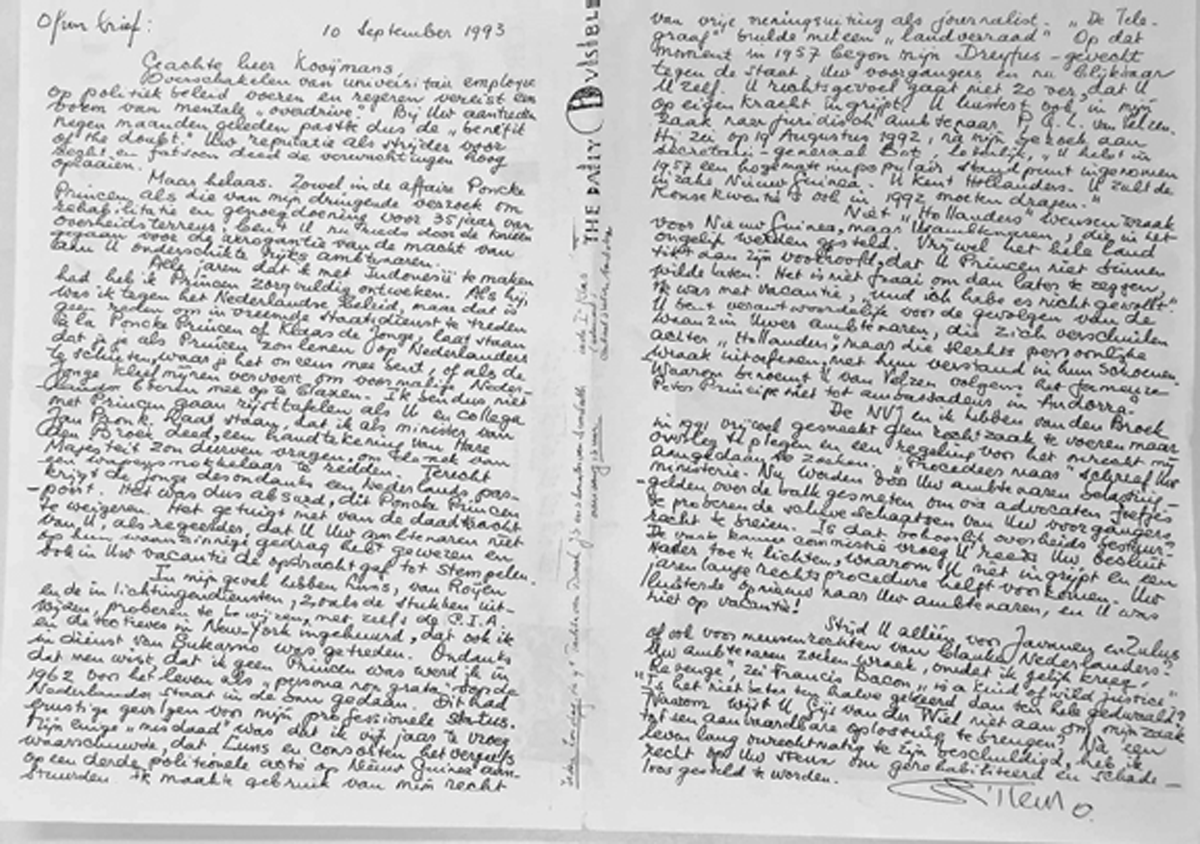 Open brief:
10 September 1993
Geachte heer Kooijmans
Overschakelen van universitair employe
op politiek beleid voeren en regeren vereist een
vorm van mentale „overdrive". Bij Uw aantreden
negen maanden geleden paste dus de „benefit
of the doubt". Uw reputatie als strijder voor
recht en fatsoen deed de verwachtingen hoog
oplaaien.
Maar helaas. Zowel in de affaire Poncke
Princen als die van mijn dringende verzoek om
rehabilitatie en genoegdoening voor 35 jaar van
overheidsterreur bent U nu reeds door de knieën
gegaan voor de arrogantie van de macht van
aan U onderschikte rijks ambtenaren.
Alle jaren dat ik met Indonesië te maken
had heb ik Princen zorgvuldig ontweken. Als hij,
was ik tegen het Nederlandse beleid, maar dat is
geen reden om in vreemde Staatsdienst te treden
à la Poncke Princen of Klaas de Jonge, laat staan
dat je je als Princen zou lenen op Nederlanders
te schieten, waar je het oneens mee bent, of als de
Jonge kleefmijnen vervoert om voormalige Neder-
landse boeren mee op te blazen. Ik ben dus niet
met Princen gaan rijsttafelen als U en collega
Jan Pronk. Laat staan, dat ik als minister van
den Broek deed, een handtekening van Hare
Majesteit zou durven vragen, om de nek van
een wapensmokkelaar te redden. Terecht
krijgt de Jonge desondanks een Nederlands pas-
poort. Het was dus absurd, dit Poncke Princen
te weigeren. Het getuigt niet van de daadkracht
van U, als regeerder, dat U Uw ambtenaren niet
op hun waanzinnige gedrag hebt gewezen en
ook in Uw vacantie de opdracht gaf tot stempelen.
In mijn geval hebben Luns, van Roijen
en de inlichtingendiensten, zoals de stukken uit-
wijzen, proberen te bewijzen, met zelfs de C.I.A.
en detectives in New-York ingehuurd, dat ook ik
in dienst van Sukarno was getreden. Ondanks
dat men wist, dat ik geen Princen was werd ik in
1962 voor het leven als „persona non grata" voor de
Nederlandse staat in de ban gedaan. Dit had
ernstige gevolgen voor mijn professionele status.
Mijn enige „misdaad" was dat ik vijf jaar te vroeg
waarschuwde, dat Luns en consorten het vergeefs
op een derde politionele actie op Nieuw Guinea aan-
stuurden. Ik maakte gebruik van mijn recht
THE DAILY INVISIBLE
van vrije meningsuiting als journalist. „De Tele-
graaf" brulde met een „landverraad" Op dat
moment in 1957 begon mijn Dreyfus-gevecht
tegen de staat, Uw voorgangers en nu blijkbaar
U zelf. U rechtsgevoel gaat niet zo ver, dat U
op eigen kracht ingrijpt. U luistert ook, in mijn
zaak naar juridisch ambtenaar P.G.L. van Velzen.
Hij zei op 19 Augustus 1992, na mijn bezoek aan
secretaris-generaal Bot, letterlijk, „U hebt in
1957 een hogemate impopulair standpunt ingenomen
inzake Nieuw Guinea. U kent Hollanders. U zult de
konsekwentie's ook in 1992 moeten dragen."
Niet „Hollanders" wensen wraak
voor Nieuw Guinea, maar Uw ambtenaren, die in het
ongelijk werden gesteld. Vrijwel het hele land
tikt aan zijn voorhoofd, dat U Princen niet binnen
wilde laten. Het is niet fraai om dan later te zeggen,
ik was met vacantie, „und ich habe es nicht gewollt".
U bent verantwoordelijk voor de gevolgen van de
waanzin Uwer ambtenaren, die zich verschuilen
achter „Hollanders", maar die slechts persoonlijke
wraak uitoefenen, met hun verstand in hun schoenen.
Waarom benoemt U van Velzen volgens het fameuze
Peter Principe niet tot ambassadeur in Andorra.
De NVJ en ik hebben van den Broek
in 1991 vrijwel gesmeekt geen rechtzaak te voeren maar
overleg te plegen en een regeling voor het onrecht mij
aangedaan te zoeken. „Procedeer maar" schreef Uw
ministerie. Nu worden door Uw ambtenaren belasting-
gelden over de balk gesmeten om via advocaten foefjes
te proberen de scheve schaatsen van Uw voorgangers
recht te breien. Is dat behoorlijk overheids bestuur?
De vaste kamer commissie vroeg U reeds Uw besluit
nader toe te lichten, waarom U niet ingrijpt en een
jaren lange rechtsprocedure helpt voorkomen. Uw
luisterde opnieuw naar Uw ambtenaren, en U was
niet op vacantie!
Strijd U alleen voor Javanen en Zulus
of ook voor mensenrechten van blanke Nederlanders?
Uw ambtenaren zoeken wraak, omdat ik gelijk kreeg.
„Revenge", zei Francis Bacon, „is a kind of wild justice".
Is het niet beter ten halve gekeerd dan ten hele gedwaald?
Waarom wijst U Gijs van der Wiel niet aan om mijn zaak
tot een aanvaardbare oplossing te brengen. Na een
leven lang onrechtmatig te zijn beschuldigd, heb ik
recht op Uw steun om gerehabiliteerd en schade-
loos gesteld te worden.